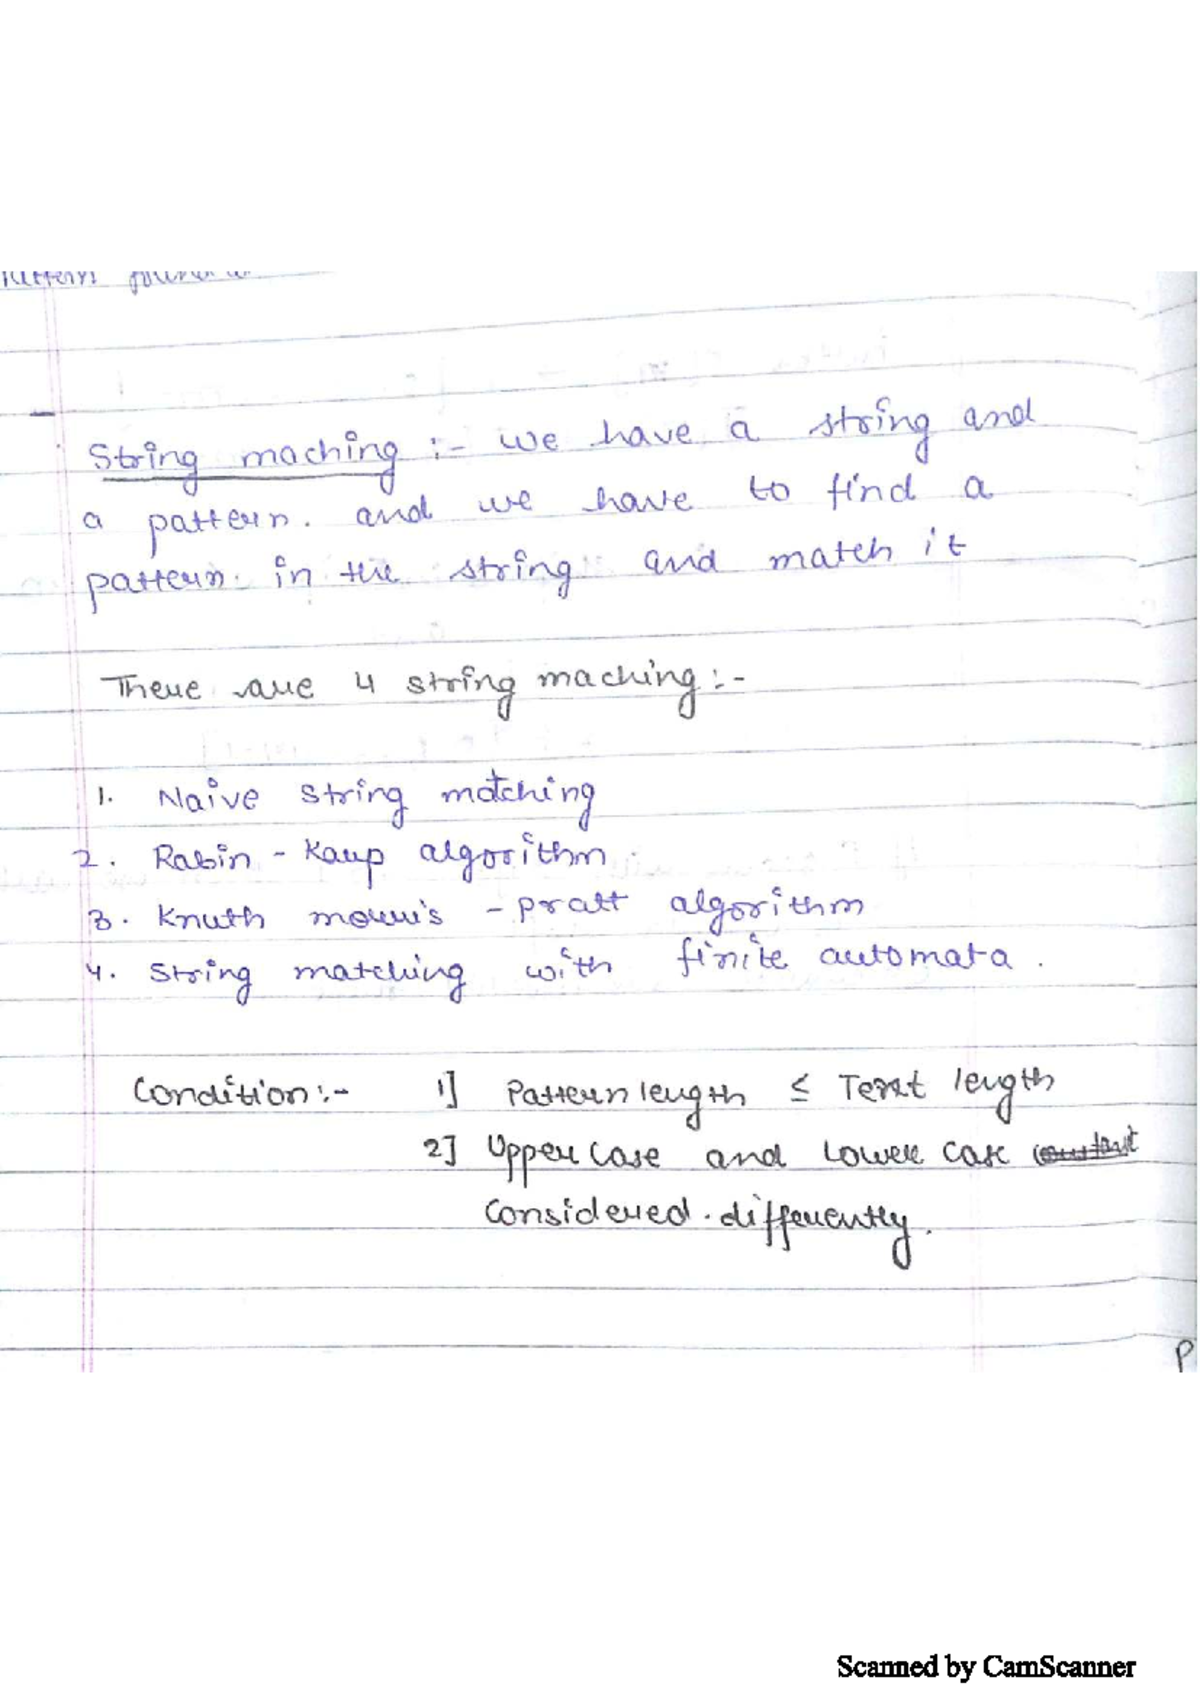 String maching :- we have a string and
a pattern. and we have to find a
pattern in the string and match it
There are 4 string maching :-
1. Naive string matching
2. Rabin - Karp algorithm
3. Knuth morris - pratt algorithm
4. String matching with finite automata.
Condition :- 1] Pattern length ≤ Text length
2] Upper case and Lower case
considered differently.
P
Scanned by CamScanner